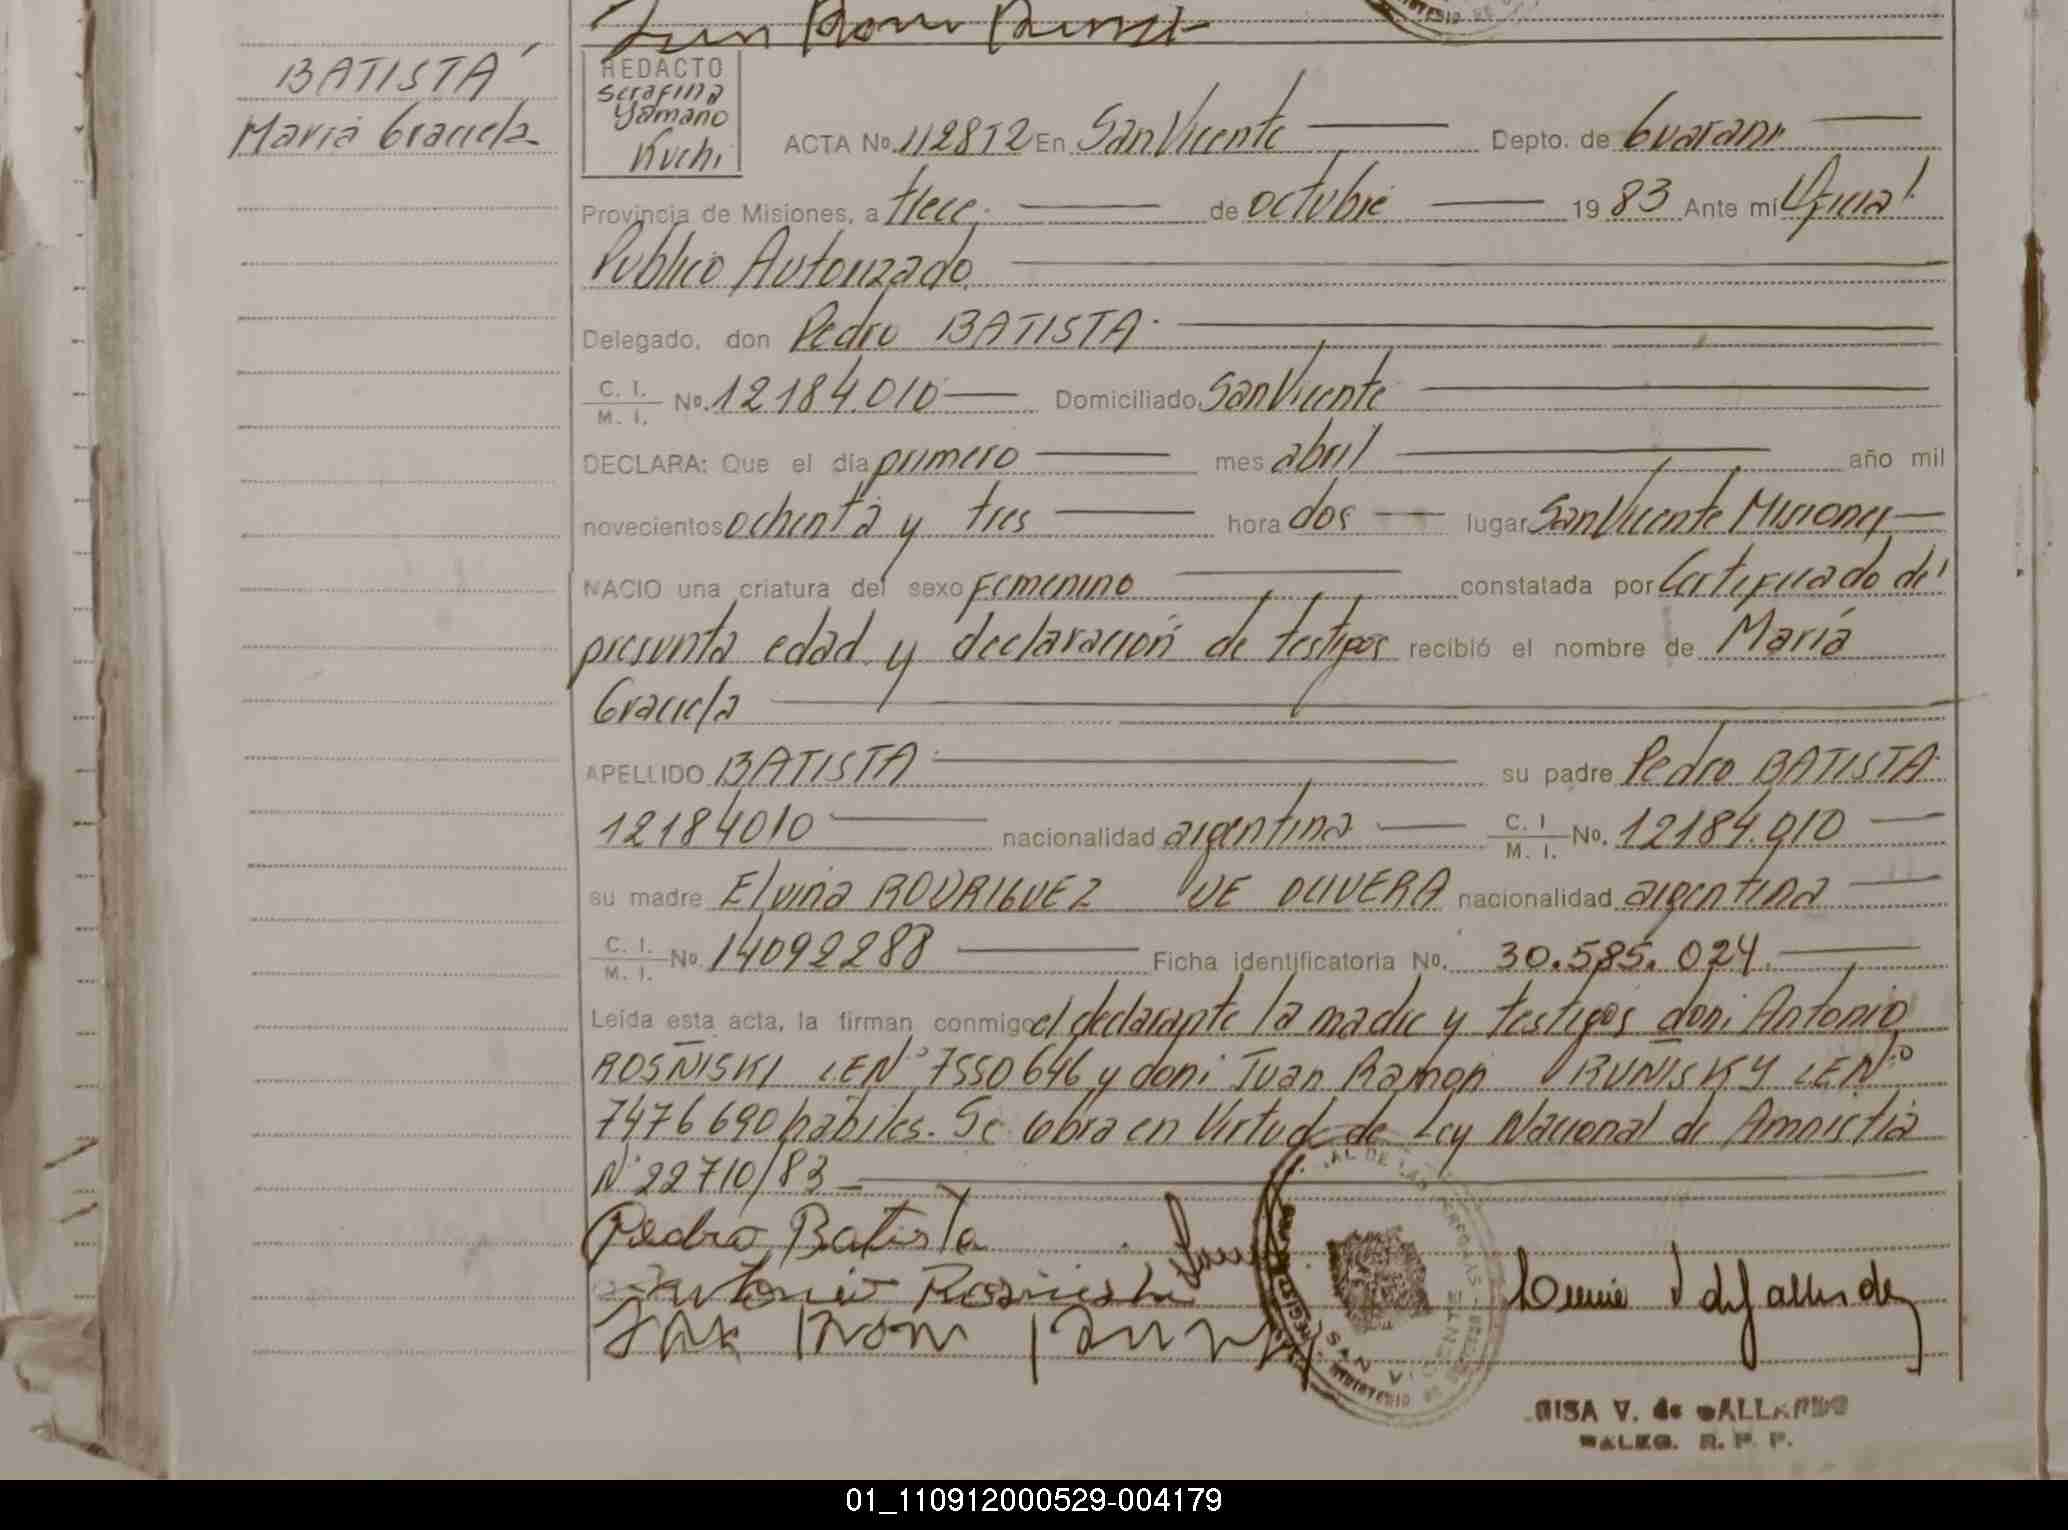 BATISTA
Maria Graciela
REDACTO
Serafina
Yamano
Kuchi
ACTA No. 112812 En San Vicente Depto. de Guarani
Provincia de Misiones, a trece de octubre 19 83 Ante mi Oficial
Publico Autorizado
Delegado, don Pedro BATISTA
C. I. M. I. No. 12184.010 Domiciliado San Vicente
DECLARA: Que el día primero mes abril año mil
novecientos ochenta y tres hora dos lugar San Vicente Misiones
NACIO una criatura del sexo Femenino constatada por Certificado de
presunta edad y declaración de testigos recibió el nombre de María
Graciela
APELLIDO BATISTA su padre Pedro BATISTA
12184010 nacionalidad argentina C. I. M. I. No. 12184.010
su madre Elvina RODRIGUEZ DE OLIVERA nacionalidad argentina
C. I. M. I. No. 14092288 Ficha identificatoria No. 30.585.024
Leída esta acta, la firman conmigo el declarante la madre y testigos don: Antonio
ROSÑISKI LEN° 7550646 y don: Juan Ramon RUNISKY LEN°
7476690 hábiles. Se labra en Virtud de Ley Nacional de Amnistia
N° 22710/83
Pedro Batista
Antonio Rosniski
SAN VICENTE
V. de GALLARDO
DALEG. R. P. P.
01_110912000529-004179